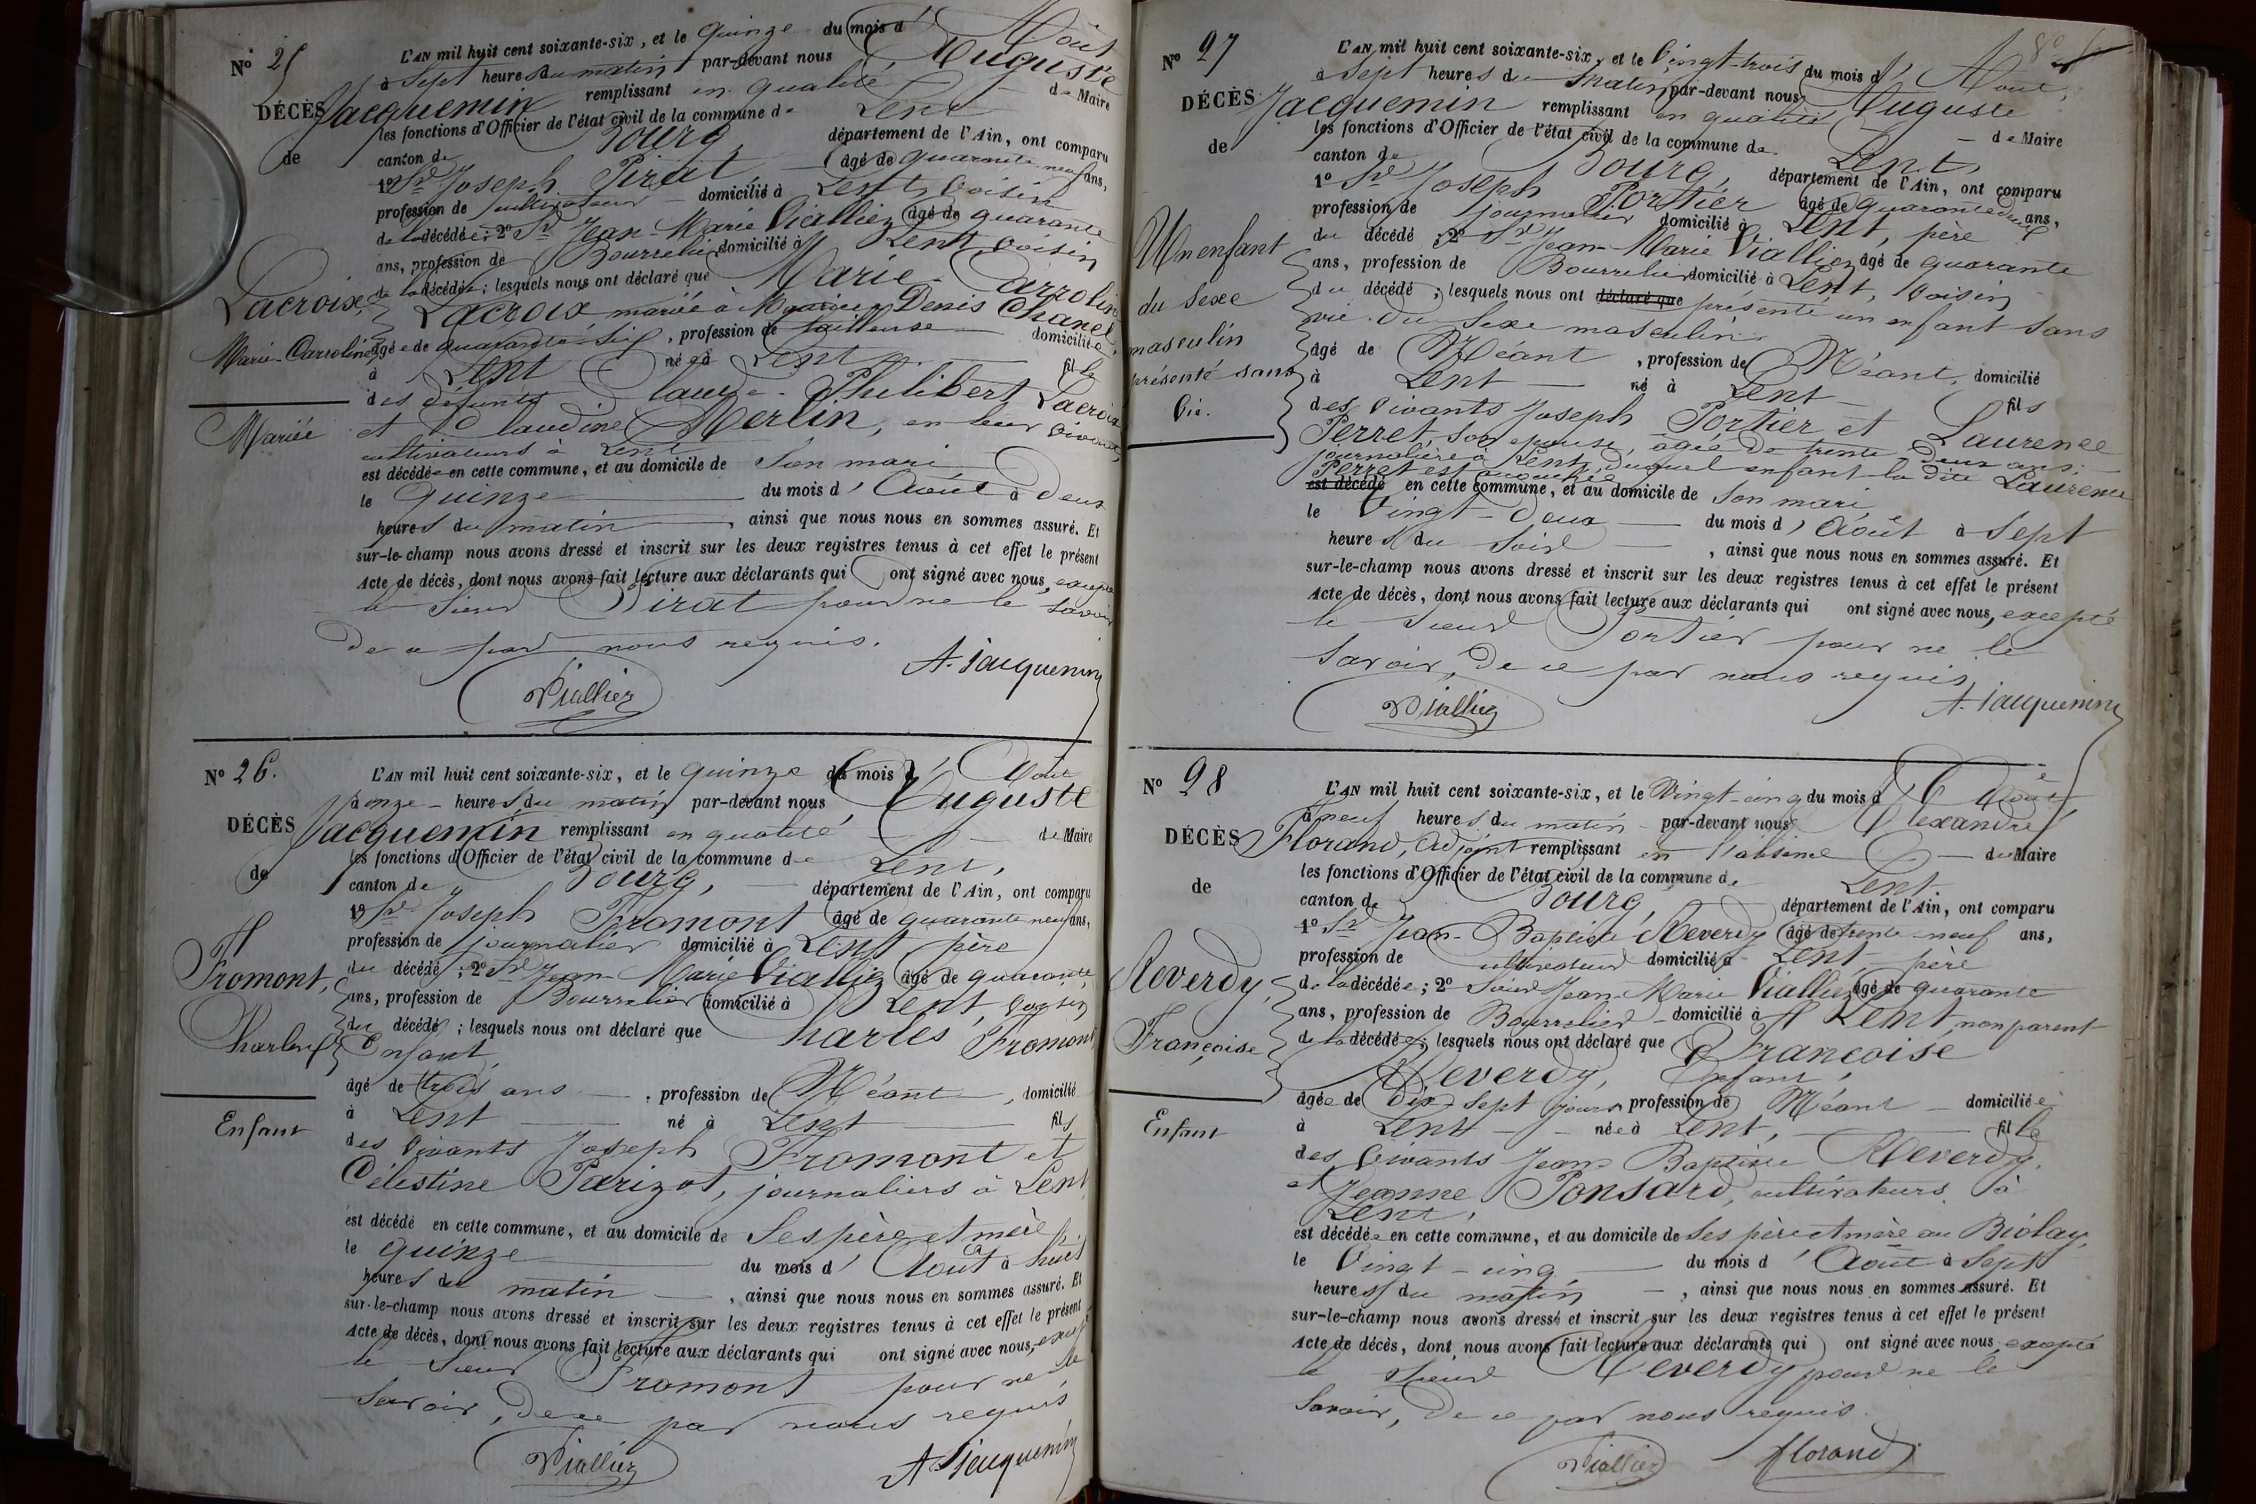 N° 25
DÉCÈS
de
Lacroix,
Marie-Carroline
Mariée
L'AN mil huit cent soixante-six, et le quinze du mois d'Août
à sept heures du matin par-devant nous Auguste
Jacquemin remplissant en qualité de Maire
les fonctions d'Officier de l'état civil de la commune de Lent
canton de Bourg, département de l'Ain, ont comparu
1° Sr Joseph Pirat âgé de quarante neuf ans,
profession de cultivateur domicilié à Lent, voisin
de la décédée ; 2° Sr Jean-Marie Viallier âgé de quarante
ans, profession de Bourrelier domicilié à Lent, voisin
de la décédée ; lesquels nous ont déclaré que Marie-Carroline
Lacroix mariée à Denis Chanel
âgée de quarante-six, profession de tailleuse domiciliée
à Lent née à Lent fille
des défunts Claude-Philibert Lacroix
et Claudine Merlin, en leur vivant,
cultivateurs à Lent
est décédée en cette commune, et au domicile de son mari
le quinze du mois d'Août à deux
heures du matin, ainsi que nous nous en sommes assuré. Et
sur-le-champ nous avons dressé et inscrit sur les deux registres tenus à cet effet le présent
Acte de décès, dont nous avons fait lecture aux déclarants qui ont signé avec nous, excepté
le sieur Pirat pour ne le savoir
de ce par nous requis.
Viallier A. Jacquemin
N° 26.
DÉCÈS
de
Fromont,
Charles
Enfant
L'AN mil huit cent soixante-six, et le quinze du mois d'Août
à onze heures du matin par-devant nous Auguste
Jacquemin remplissant en qualité de Maire
les fonctions d'Officier de l'état civil de la commune de Lent,
canton de Bourg, département de l'Ain, ont comparu
1° Sr Joseph Fromont âgé de quarante neuf ans,
profession de journalier domicilié à Lent père
du décédé ; 2° Sr Jean-Marie Viallier âgé de quarante
ans, profession de Bourrelier domicilié à Lent, voisin
du décédé ; lesquels nous ont déclaré que Charles Fromont
Enfant
âgé de trois ans, profession de Néant, domicilié
à Lent né à Lent fils
des vivants Joseph Fromont et
Célestine Parizot, journaliers à Lent
est décédé en cette commune, et au domicile de ses père et mère,
le quinze du mois d'Août à huit
heures du matin, ainsi que nous nous en sommes assuré. Et
sur-le-champ nous avons dressé et inscrit sur les deux registres tenus à cet effet le présent
Acte de décès, dont nous avons fait lecture aux déclarants qui ont signé avec nous, excepté
le sieur Fromont pour ne le
savoir, de ce par nous requis
Viallier A. Jacquemin
N° 27
DÉCÈS
de
Un enfant
du sexe
masculin
présenté sans
vie.
L'AN mil huit cent soixante-six, et le vingt-trois du mois d'Août,
à sept heures du matin par-devant nous Auguste
Jacquemin remplissant en qualité de Maire
les fonctions d'Officier de l'état civil de la commune de Lent,
canton de Bourg, département de l'Ain, ont comparu
1° Sr Joseph Portier âgé de quarante deux ans,
profession de journalier domicilié à Lent, père
du décédé ; 2° Sr Jean-Marie Viallier âgé de quarante
ans, profession de Bourrelier domicilié à Lent, voisin
du décédé ; lesquels nous ont déclaré que présenté un enfant sans
vie du sexe masculin.
âgé de Néant, profession de Néant, domicilié
à Lent né à Lent fils
des vivants Joseph Portier et Laurence
Perret, son épouse, âgée de trente-deux ans,
journalière à Lent, duquel enfant la dite Laurence
Perret est accouchée
est décédé en cette commune, et au domicile de son mari,
le vingt-deux du mois d'Août à sept
heures du soir, ainsi que nous nous en sommes assuré. Et
sur-le-champ nous avons dressé et inscrit sur les deux registres tenus à cet effet le présent
Acte de décès, dont nous avons fait lecture aux déclarants qui ont signé avec nous, excepté
le sieur Portier pour ne le
savoir, de ce par nous requis
Viallier A. Jacquemin
N° 28
DÉCÈS
de
Reverdy,
Françoise
Enfant
L'AN mil huit cent soixante-six, et le vingt-cinq du mois d'Août,
à neuf heures du matin par-devant nous Alexandre
Florand, adjoint remplissant en l'absence du Maire
les fonctions d'Officier de l'état civil de la commune de Lent
canton de Bourg, département de l'Ain, ont comparu
1° Sr Jean-Baptiste Reverdy âgé de trente-neuf ans,
profession de cultivateur domicilié à Lent, père
de la décédée ; 2° Sieur Jean-Marie Viallier âgé de quarante
ans, profession de Bourrelier domicilié à Lent non parent
de la décédée ; lesquels nous ont déclaré que Françoise
Reverdy, Enfant,
âgée de dix-sept jours, profession de Néant domiciliée
à Lent née à Lent, fille
des vivants Jean-Baptiste Reverdy,
et Jeanne Ponsard, cultivateurs à
Lent,
est décédée en cette commune, et au domicile de ses père et mère au Biolay,
le vingt-cinq du mois d'Août à sept
heures du matin, ainsi que nous nous en sommes assuré. Et
sur-le-champ nous avons dressé et inscrit sur les deux registres tenus à cet effet le présent
Acte de décès, dont nous avons fait lecture aux déclarants qui ont signé avec nous, excepté
le sieur Reverdy pour ne le
savoir, de ce par nous requis.
Viallier Florand